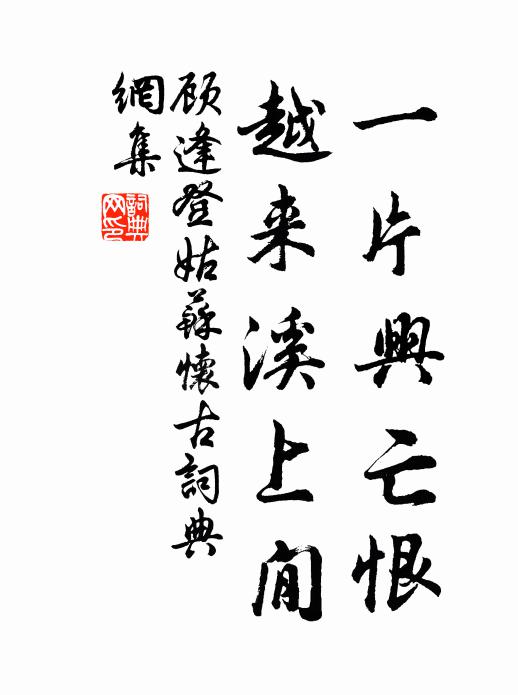 一片興亡恨
越来溪上間
顾逢登姑蘇懷古詞典
網集
詞典
网印